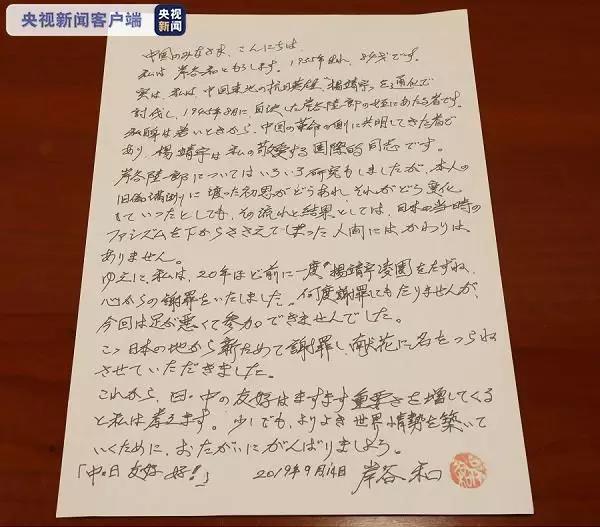 央视新闻客户端
中国のみなさま、こんにちは。
私は岸谷和ともうします。1935年生れ、84才です。
実は、私は中国東北の抗日英雄、"楊靖宇"を通化で
討伐し、1945年8月に自決した岸谷隆一郎の姪にあたる者です。
私は若いときから、中国の革命の側に共鳴してきた者で
あり、楊靖宇は私の敬愛する国際的同志です。
岸谷隆一郎についてはいろいろ研究もしましたが、本人の
旧 満 に渡った初思がどうあれ、それがどう変化
していったとしても、その流れと結果としては、日本の当時の
ファシズムを下からささえてしまった人間には、かわりは
ありません。
ゆえに、私は、20年ほど前に一度"楊靖宇陵園"をたずね、
心からの謝罪をいたしました。何度謝罪してもたりませんが、
今回は足が悪くて参加できませんでした。
この日本の地から新ためて謝罪し、献花に名をつらね
させていただきました。
これから、日・中の友好はますます重要さを増してくる
と私は考えます。少しでも、よりよき世界情勢を築いて
いくために、おたがいにがんばりましょう。
「中・日友好好!」 2019年9月14日 岸谷和